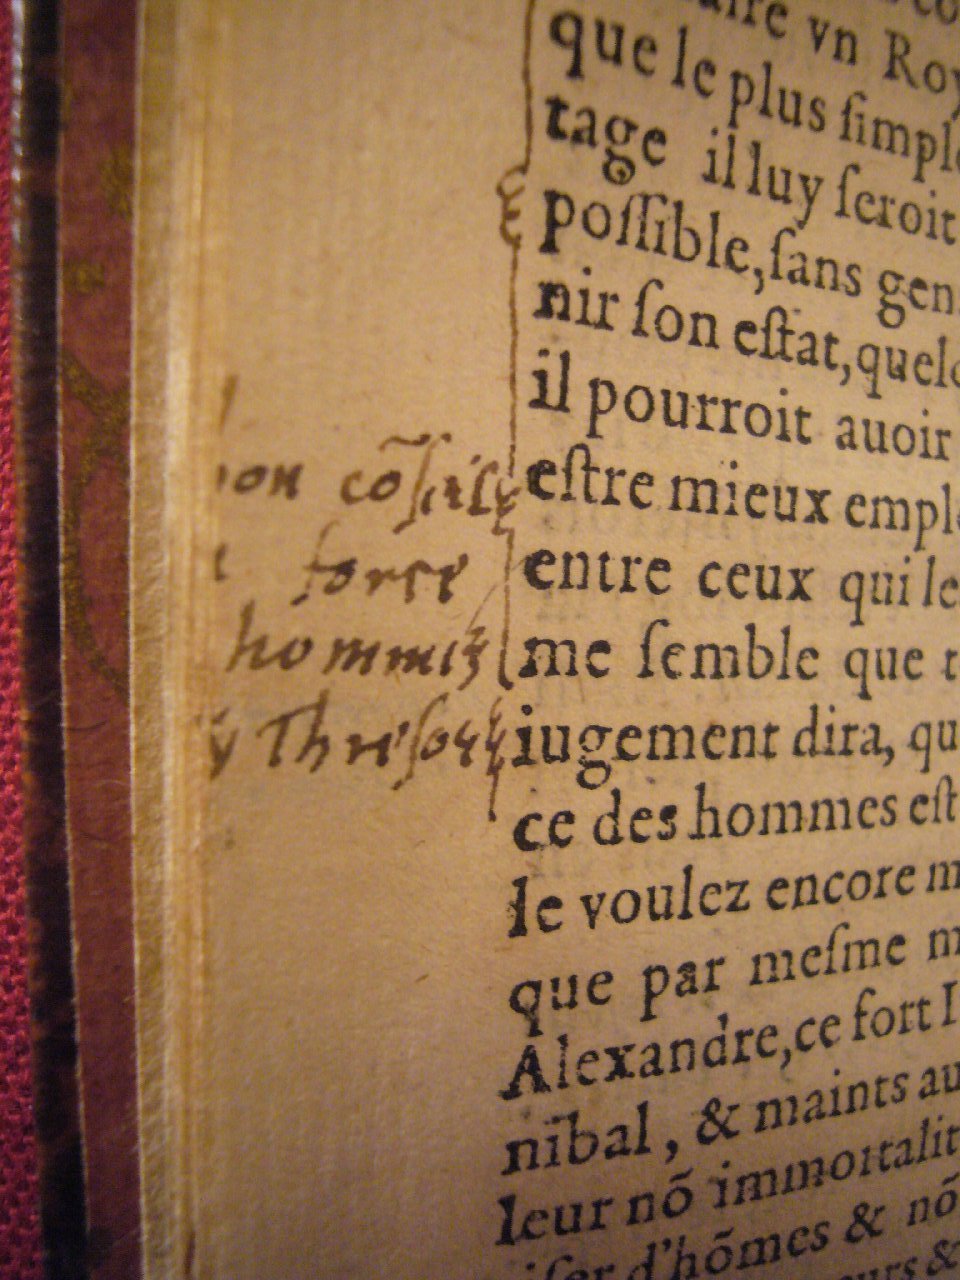 aire vn Roy
que le plus ſimple
tage il luy ſeroit
poſſible, ſans gen
nir ſon eſtat, quelc
il pourroit auoir
eſtre mieux emplo
entre ceux qui le
me ſemble que t
iugement dira, qu
ce des hommes eſt
le voulez encore m
que par meſme m
Alexandre, ce fort I
nibal, & maints au
leur nõ immortalit
d'hõmes & nõ
on cõſeil
force
hommes
Threſor